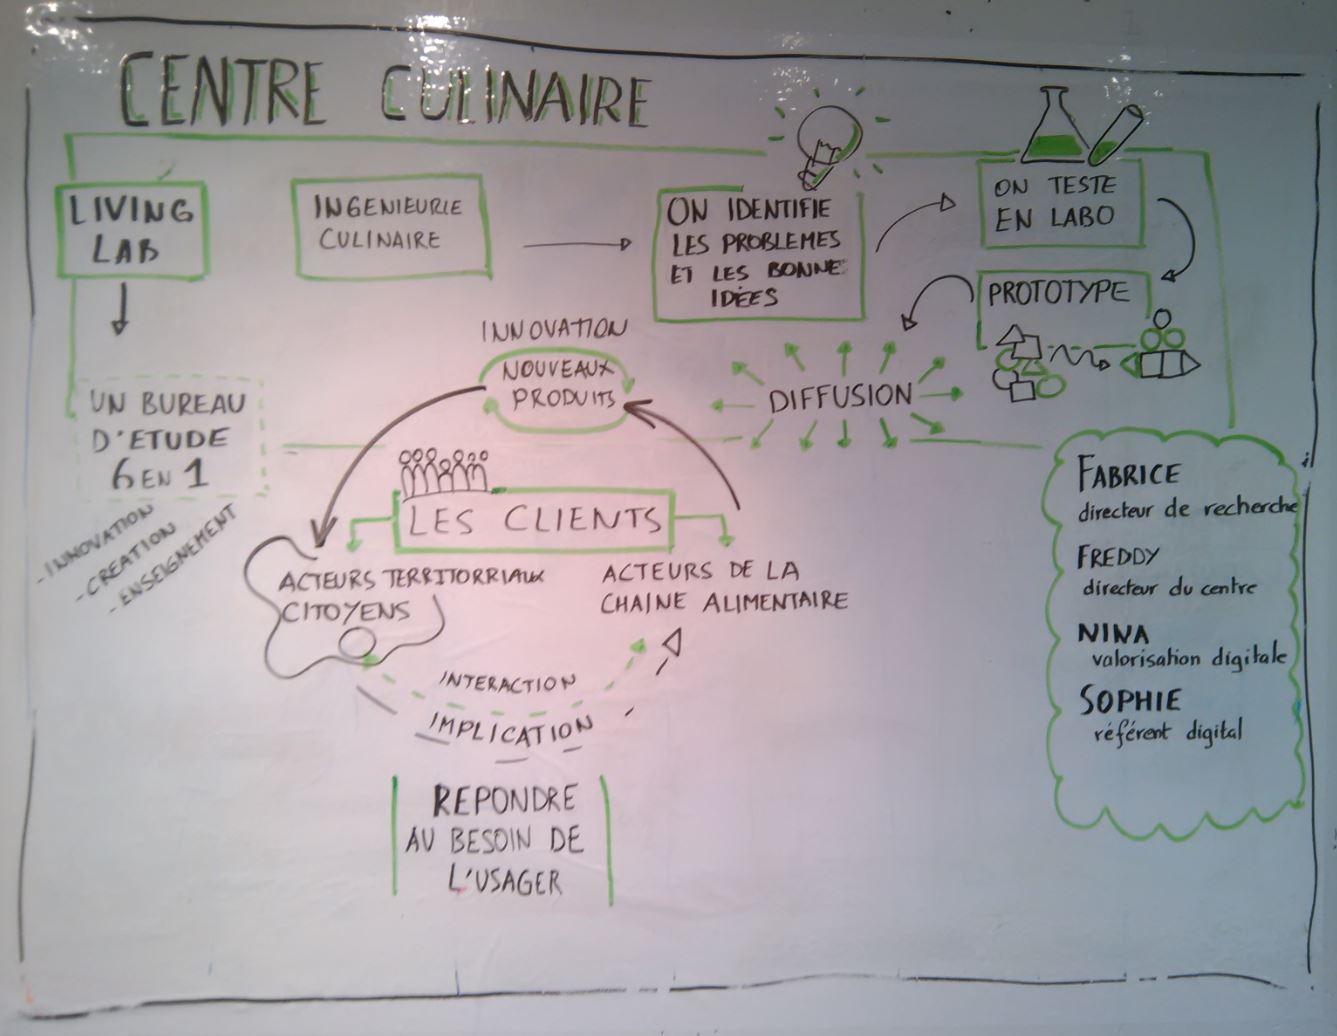 CENTRE CULINAIRE
LIVING
LAB
INGENIEURIE
CULINAIRE
ON IDENTIFIE
LES PROBLEMES
ET LES BONNE
IDÉES
ON TESTE
EN LABO
PROTOTYPE
DIFFUSION
INNOVATION
NOUVEAUX
PRODUITS
UN BUREAU
D'ETUDE
6 EN 1
- INNOVATION
- CREATION
- ENSEIGNEMENT
LES CLIENTS
ACTEURS TERRITORRIAUX
CITOYENS
ACTEURS DE LA
CHAINE ALIMENTAIRE
INTERACTION
IMPLICATION
REPONDRE
AU BESOIN DE
L'USAGER
FABRICE
directeur de recherche
FREDDY
directeur du centre
NINA
valorisation digitale
SOPHIE
référent digital